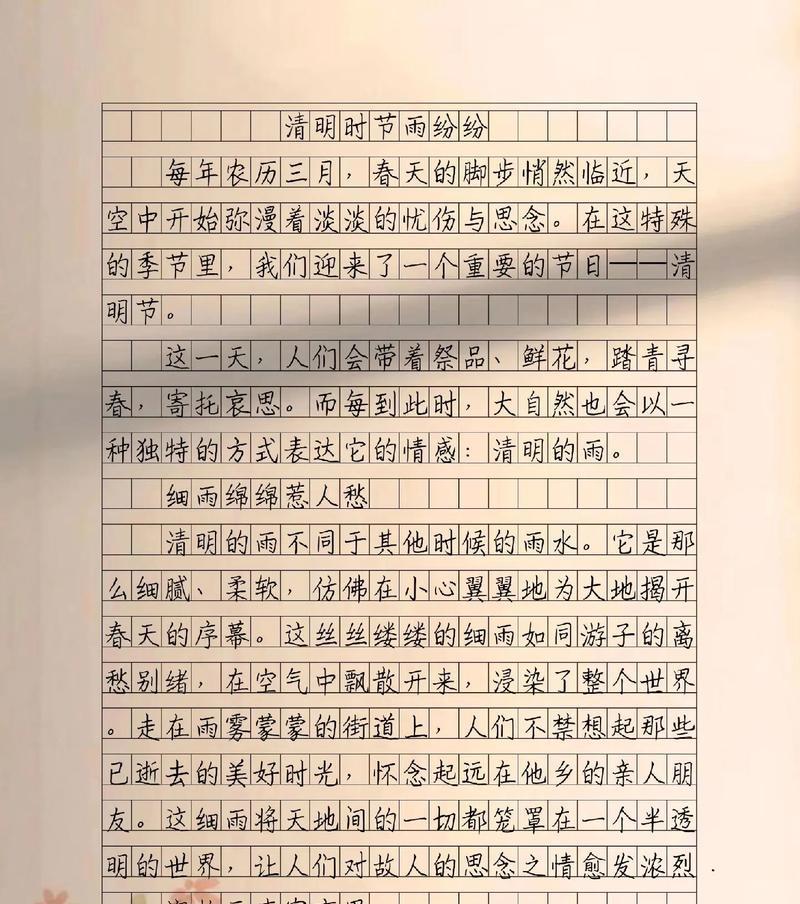 清明时节雨纷纷
每年农历三月，春天的脚步悄然临近，天
空中开始弥漫着淡淡的忧伤与思念。在这特殊
的季节里，我们迎来了一个重要的节日——清
明节。
这一天，人们会带着祭品、鲜花，踏青寻
春，寄托哀思。而每到此时，大自然也会以一
种独特的方式表达它的情感：清明的雨。
细雨绵绵惹人愁
清明的雨不同于其他时候的雨水。它是那
么细腻、柔软，仿佛在小心翼翼地为大地揭开
春天的序幕。这丝丝缕缕的细雨如同游子的离
愁别绪，在空气中飘散开来，浸染了整个世界
。走在雨雾蒙蒙的街道上，人们不禁想起那些
已逝去的美好时光，怀念起远在他乡的亲人朋
友。这细雨将天地间的一切都笼罩在一个半透
明的世界，让人们对故人的思念之情愈发浓烈